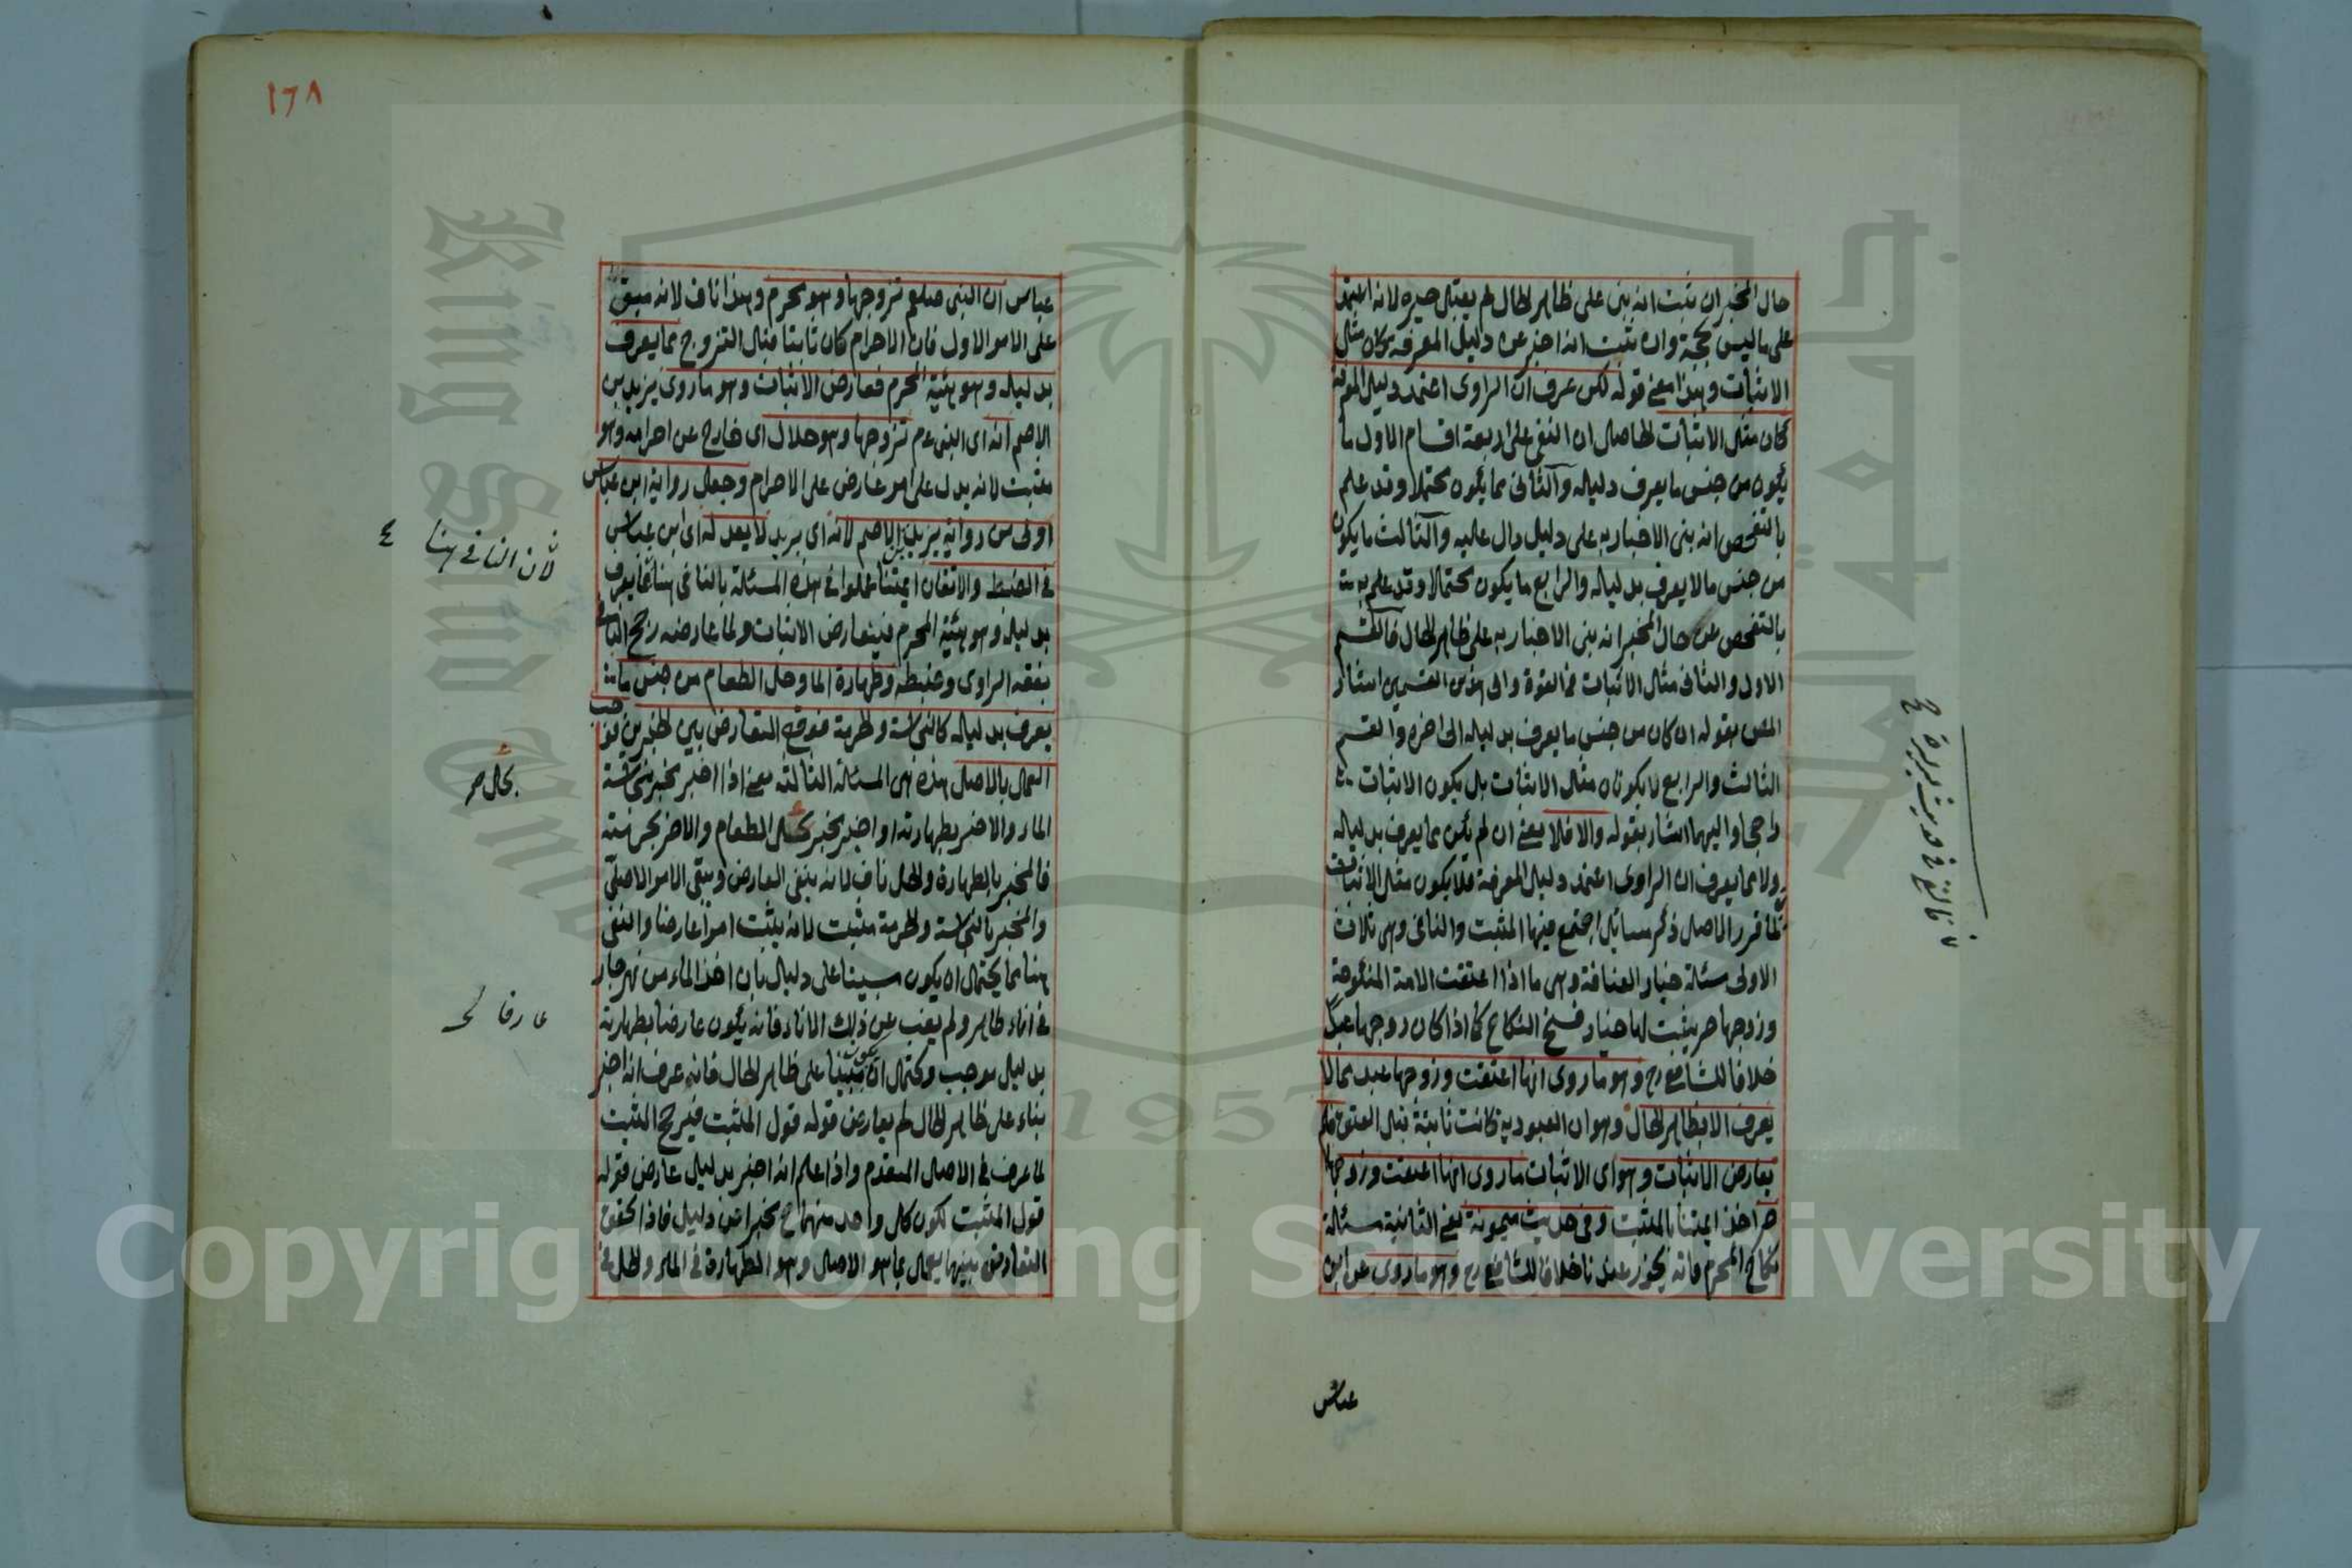 حال المخبر ان ثبت انه بنى على ظاهر الحال لم يقبل خبره لانه اعتمد
على ما ليس بحجة وان ثبت انه اخبر عن دليل المعرفة كان مثل
الاثبات وهذا معنى قوله لكن عرف ان الراوى اعتمد دليل المعرفة
كان مثل الاثبات الحاصل ان النفى على اربعة اقسام الاول ما
يكون من جنس ما يعرف دليله والثانى مما يكون محتملا وقد علم
بالتفحص انه بنى الاخبار به على دليل دال عليه والثالث ما يكون
من جنس ما لا يعرف بدليله والرابع ما يكون محتملا وقد علم
بالتفحص عن حال المخبر انه بنى الاخبار به على ظاهر الحال فالقسم
الاول والثانى مثل الاثبات فى القوة والى هذين القسمين اشار
المص بقوله ان كان من جنس ما يعرف بدليله الى اخره والقسم
الثالث والرابع لا يكونان مثل الاثبات بل يكون الاثبات
راجحا واليهما اشار بقوله والا فلا يعنى ان لم يكن مما يعرف بدليله
ولا مما يعرف ان الراوى اعتمد دليل المعرفة فلا يكون مثل الاثبات
لما قرر الاصل ذكر مسائل اجتمع فيها المثبت والنافى وهى ثلاث
الاولى مسئلة خيار العتاقة وهى ما اذا اعتقت الامة المنكوحة
وزوجها حر يثبت لها خيار فسخ النكاح كما اذا كان زوجها عبدا
خلافا للشافعى رح وهو ما روى انها اعتقت وزوجها عبد مما لا
يعرف الا بظاهر الحال وهو ان العبودية كانت ثابتة قبل العتق فلم
يعارض الاثبات وهو اى الاثبات ما روى انها اعتقت وزوجها
حر اخذ ائمتنا بالمثبت وفى حديث ميمونة يعنى الثانية مسئلة
نكاح المحرم فانه يجوز عندنا خلافا للشافعى رح وهو ما روى عن ابن
عباس
١٦٨
عباس ان النبى صلعم تزوجها وهو محرم وهذا ناف لانه مبق
على الامر الاول فان الاحرام كان ثابتا قبل التزوج مما يعرف
بدليله وهو هيئة المحرم فعارض الاثبات وهو ما روى يزيد بن
الاصم انه اى النبى عم تزوجها وهو حلال اى خارج عن احرامه وهو
مثبت لانه يدل على امر عارض على الاحرام وجعل رواية ابن عباس
اولى من رواية يزيد بن الاصم لانه اى يزيد لا يعدله اى ابن عباس
فى الضبط والاتقان ائمتنا عملوا فى هذه المسئلة بالنافى هنا مما يعرف
بدليله وهو هيئة المحرم فيتعارض الاثبات ولما عارضه رجح النافى
بفقه الراوى وضبطه وطهارة الماء وحل الطعام من جنس ما
يعرف بدليله كالنجاسة والحرمة فوقع التعارض بين الخبرين فوجب
العمل بالاصل هذه هى المسئلة الثالثة يعنى اذا اخبر مخبر بنجاسة
الماء والاخر بطهارته او اخبر مخبر بحل الطعام والاخر بحرمته
فالمخبر بالطهارة والحل ناف لانه ينفى العارض ويبقى الامر الاصلى
والمخبر بالنجاسة والحرمة مثبت لانه يثبت امرا عارضا والنفى
هنا مما يحتمل ان يكون مبنيا على دليل بان اخذ الماء من نهر جار
فى اناء طاهر ولم يغب عن ذلك الاناء فانه يكون عارفا بطهارته
بدليل موجب ويحتمل ان يكون مبنيا على ظاهر الحال فانه عرف انه اخبر
بناء على ظاهر الحال لم يعارض قوله قول المثبت فيرجح المثبت
لما عرف فى الاصل المتقدم واذا علم انه اخبر بدليل عارض قوله
قول المثبت لكون كل واحد منهما ح مخبرا عن دليل فاذا تحقق
التعارض بينهما يعمل بما هو الاصل وهو الطهارة فى الماء والحل فى
لان النافى هنا
بحل صح
عارفا
Copyright © King Saud University
King Saud University
1957